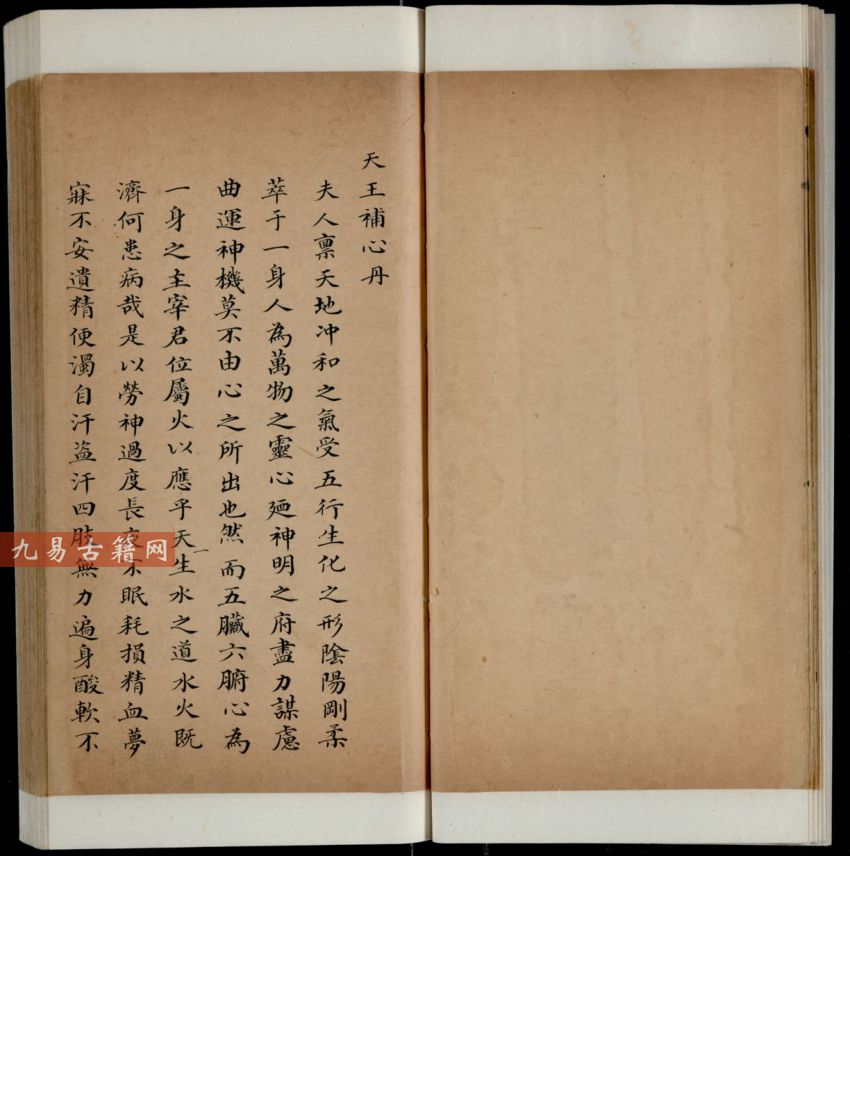 天王補心丹
夫人禀天地冲和之氣受五行生化之形陰陽剛柔
萃于一身人為萬物之靈心廼神明之府盡力謀慮
曲運神機莫不由心之所出也然而五臟六腑心為
一身之主宰君位屬火以應乎天一生水之道水火既
濟何患病哉是以勞神過度長夜不眠耗損精血夢
寐不安遺精便濁自汗盗汗四肢無力遍身酸軟不
九易古籍网